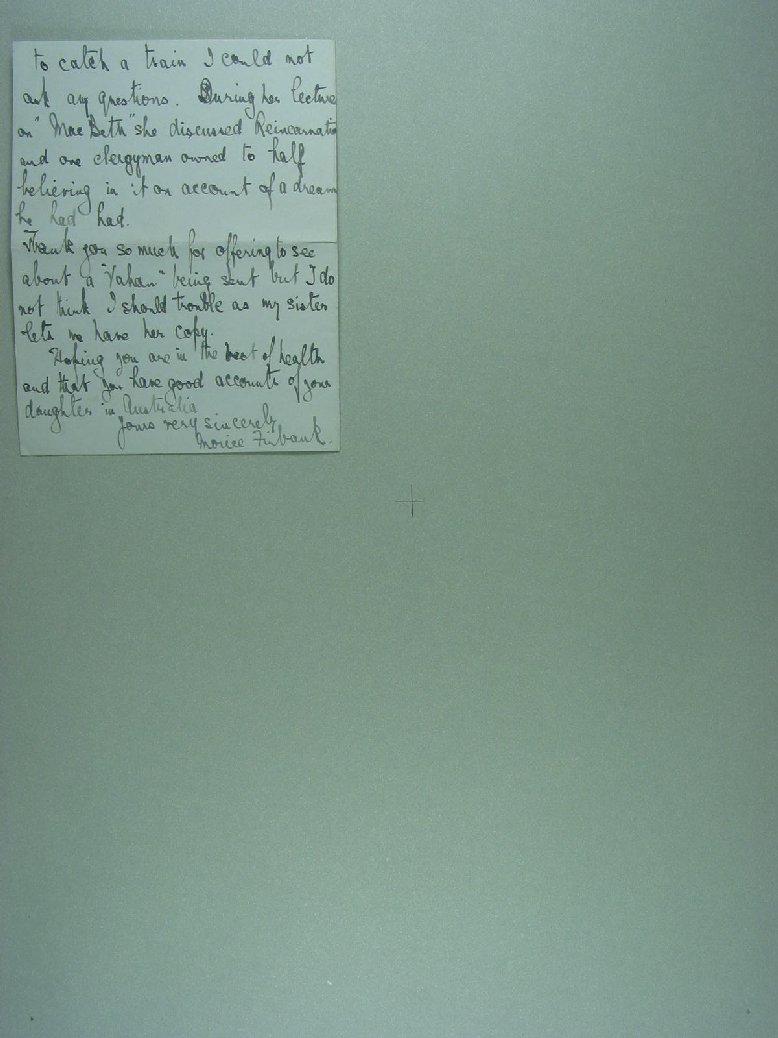 to catch a train I could not
ask any questions. During her lecture
on "MacBeth" she discussed Reincarnation
and one clergyman owned to half
believing in it on account of a dream
he had had.
Thank you so much for offering to see
about a "Vahan" being sent but I do
not think I should trouble as my sister
lets me have her copy.
Hoping you are in the best of health
and that you have good accounts of your
daughter in Australia
Yours very sincerely
Firbank.